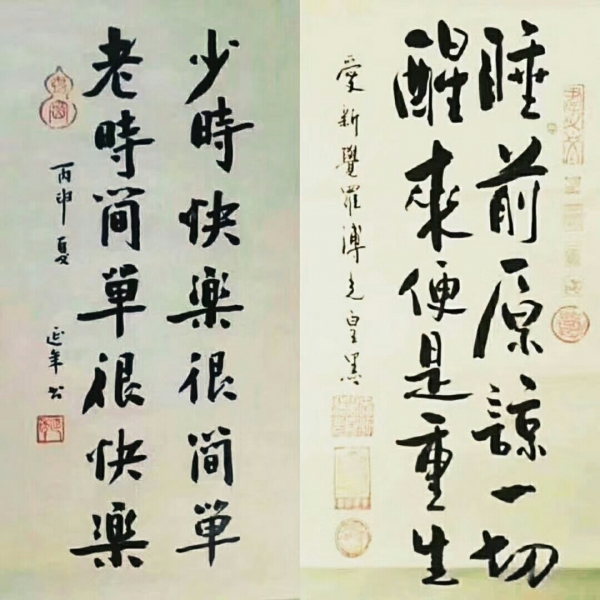 睡前原諒一切
醒來便是重生
愛新覺羅溥
少時快樂很簡單
老時簡單很快樂
丙申夏 延年书